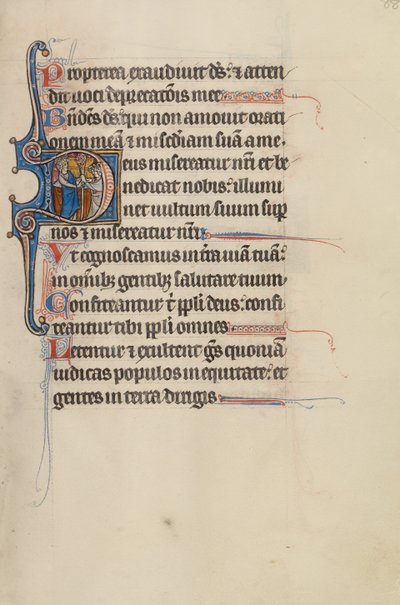 Propterea exaudiuit ds: ⁊ atten
dit uoci deprecatōis mee
Bn̄dcs ds: qui non amouit orati
onem meā ⁊ misc̄diam suā a me.
Deus misereatur nr̄i et be
nedicat nobis: illumi
net uultum suum sup̱
nos ⁊ misereatur nr̄i
Vt cognoscamus in t̄ra uiā tuā:
in om̄ibꝫ gentibꝫ salutare tuum
Confiteantur t̄ pp̄li deus: confi
teantur tibi pp̄li omnes
Letentur ⁊ exultent gs̄ quoniā
iudicas populos in equitate: et
gentes in terra dirigis